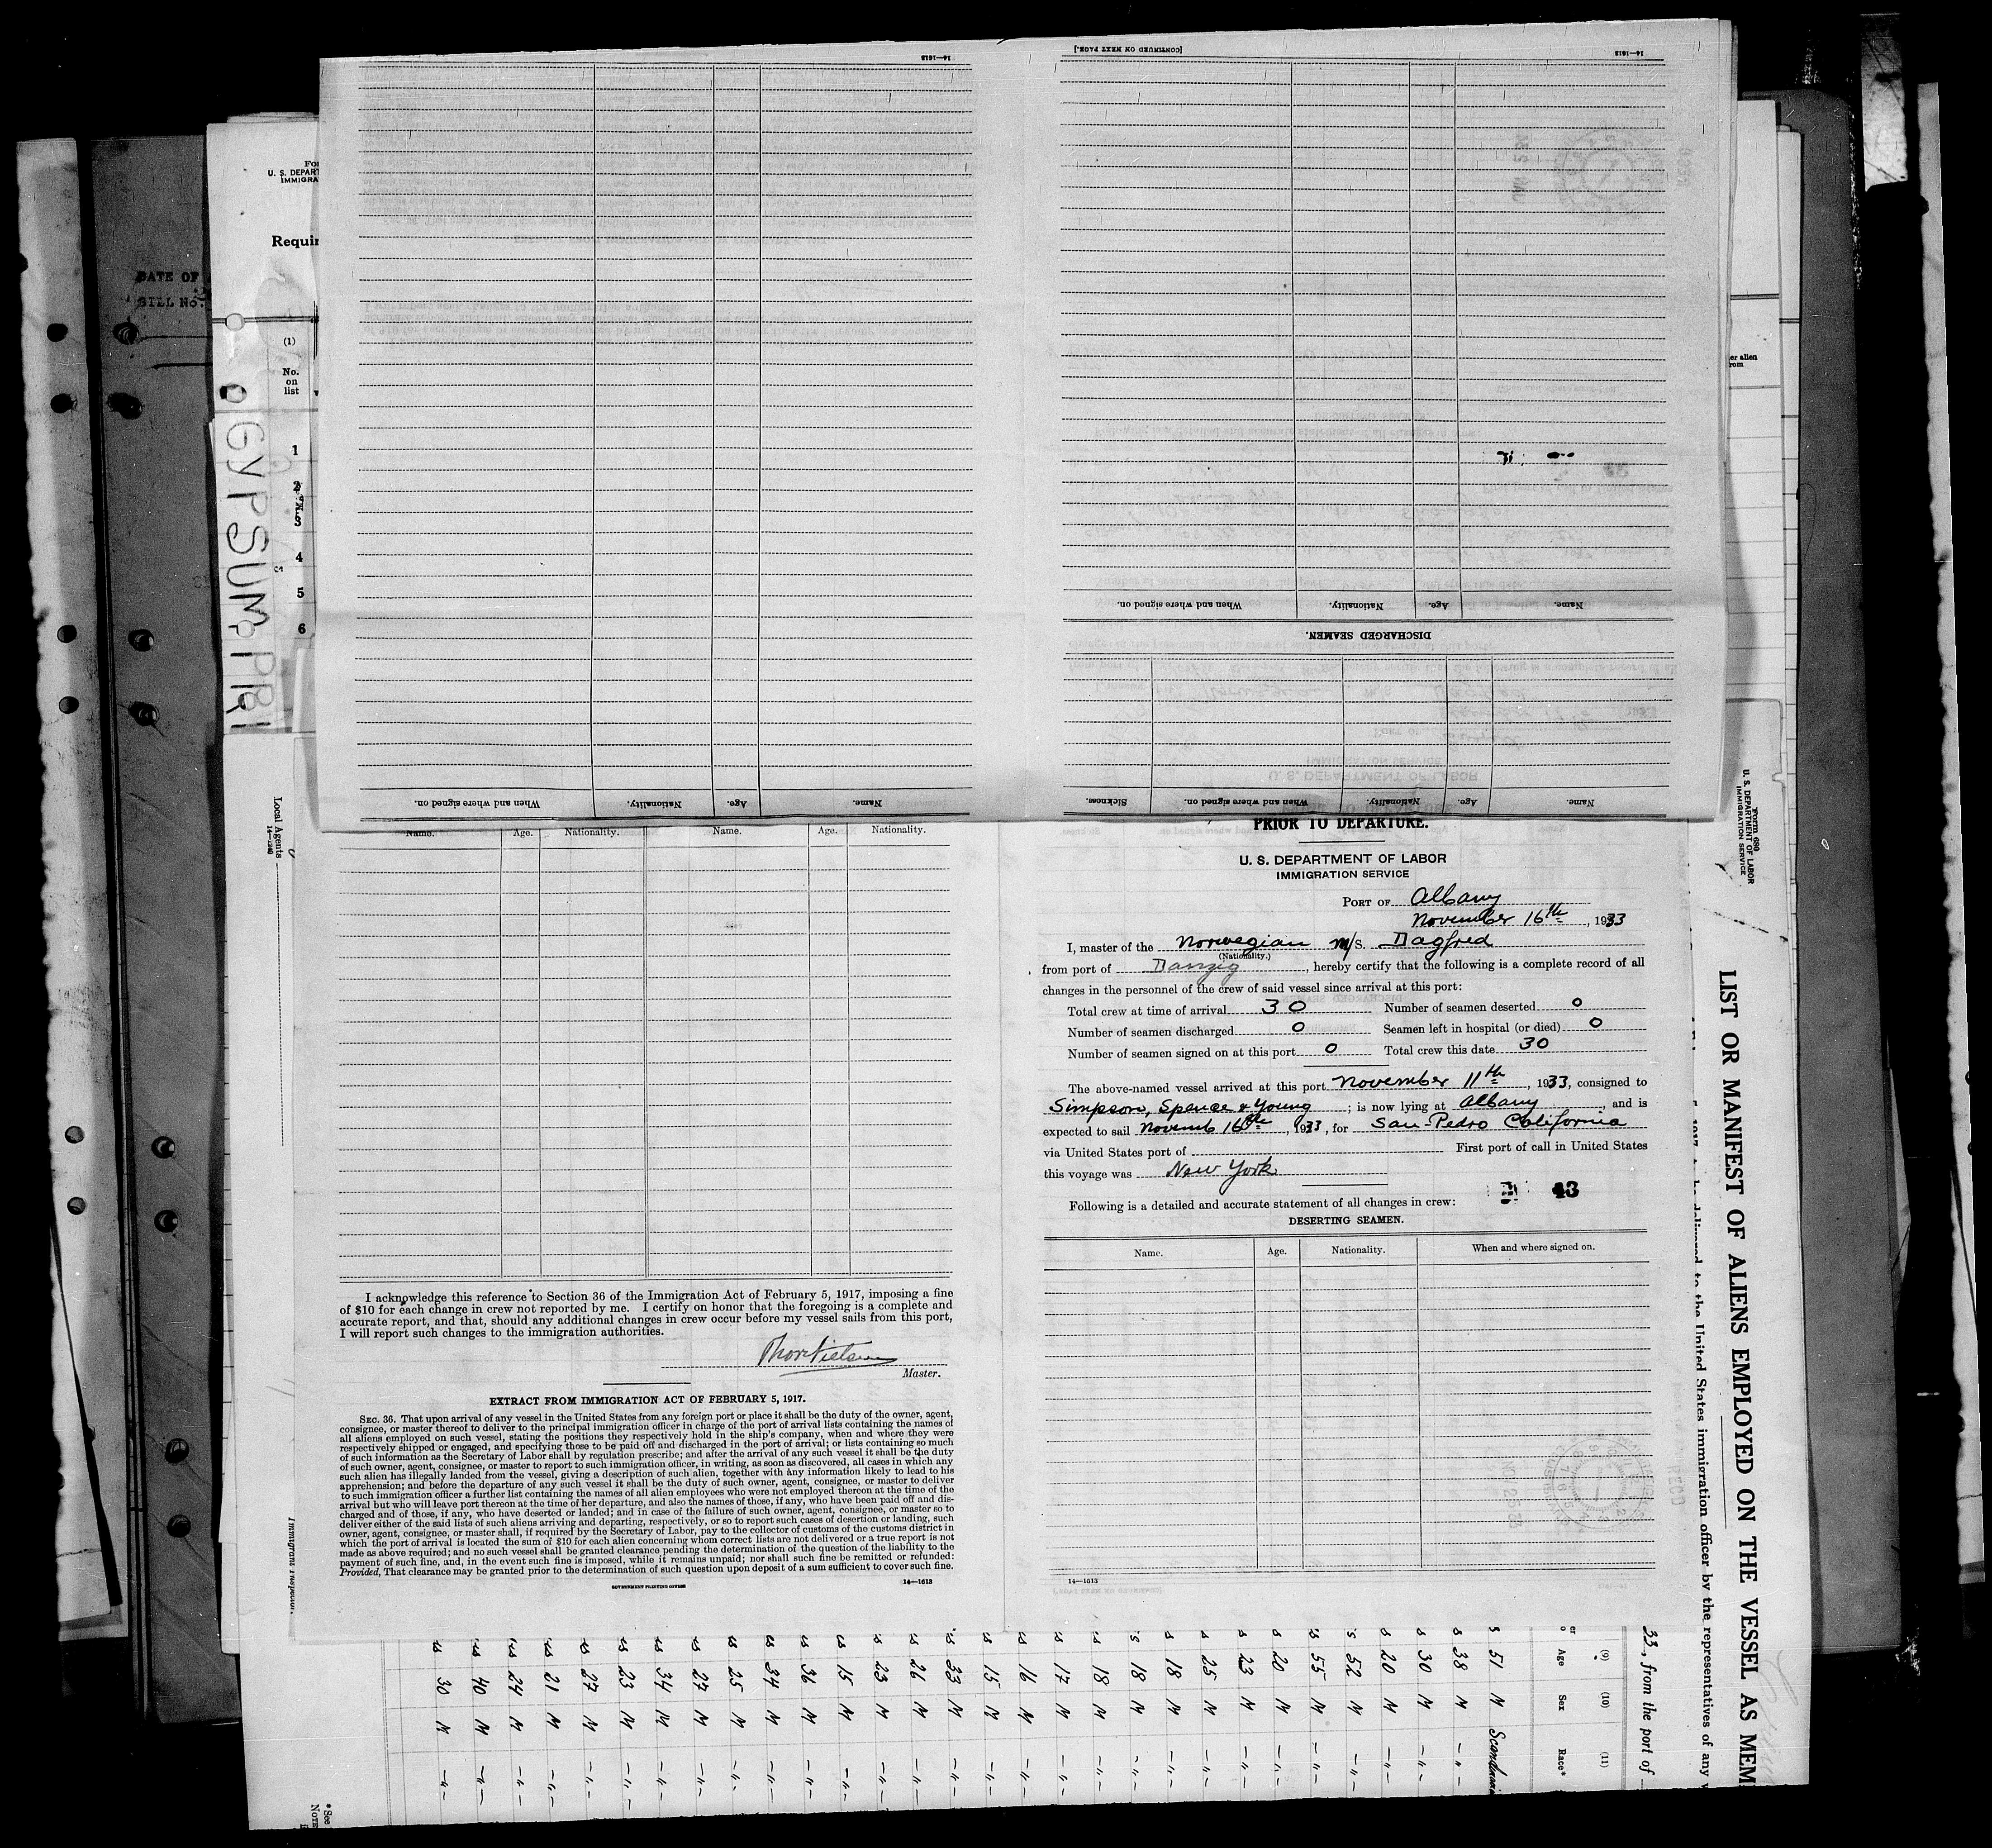 [CONTINUED ON NEXT PAGE.]
14—1613
14—1613
When and where signed on.
Nationality.
Age.
Name.
DISCHARGED SEAMEN.
Name.
Age.
Nationality.
When and where signed on.
Name.
Age.
Nationality.
When and where signed on.
Sickness.
DATE OF
BILL No.
U. S. DEPART
IMMIGRA
Requir
(1)
No.
on
list
1
2
3
4
5
6
GYPSUM PRI
er alien
rom
Local Agents
Name. Age. Nationality. Name. Age. Nationality.
I acknowledge this reference to Section 36 of the Immigration Act of February 5, 1917, imposing a fine
of $10 for each change in crew not reported by me. I certify on honor that the foregoing is a complete and
accurate report, and that, should any additional changes in crew occur before my vessel sails from this port,
I will report such changes to the immigration authorities.
Thor Nielsen
Master.
EXTRACT FROM IMMIGRATION ACT OF FEBRUARY 5, 1917.
SEC. 36. That upon arrival of any vessel in the United States from any foreign port or place it shall be the duty of the owner, agent,
consignee, or master thereof to deliver to the principal immigration officer in charge of the port of arrival lists containing the names of
all aliens employed on such vessel, stating the positions they respectively hold in the ship's company, when and where they were
respectively shipped or engaged, and specifying those to be paid off and discharged in the port of arrival; or lists containing so much
of such information as the Secretary of Labor shall by regulation prescribe; and after the arrival of any such vessel it shall be the duty
of such owner, agent, consignee, or master to report to such immigration officer, in writing, as soon as discovered, all cases in which any
such alien has illegally landed from the vessel, giving a description of such alien, together with any information likely to lead to his
apprehension; and before the departure of any such vessel it shall be the duty of such owner, agent, consignee, or master to deliver
to such immigration officer a further list containing the names of all alien employees who were not employed thereon at the time of the
arrival but who will leave port thereon at the time of her departure, and also the names of those, if any, who have been paid off and dis-
charged and of those, if any, who have deserted or landed; and in case of the failure of such owner, agent, consignee, or master so to
deliver either of the said lists of such aliens arriving and departing, respectively, or so to report such cases of desertion or landing, such
owner, agent, consignee, or master shall, if required by the Secretary of Labor, pay to the collector of customs of the customs district in
which the port of arrival is located the sum of $10 for each alien concerning whom correct lists are not delivered or a true report is not
made as above required; and no such vessel shall be granted clearance pending the determination of the question of the liability to the
payment of such fine, and, in the event such fine is imposed, while it remains unpaid; nor shall such fine be remitted or refunded:
Provided, That clearance may be granted prior to the determination of such question upon deposit of a sum sufficient to cover such fine.
GOVERNMENT PRINTING OFFICE 14—1613
PRIOR TO DEPARTURE.
U. S. DEPARTMENT OF LABOR
IMMIGRATION SERVICE
PORT OF Albany
November 16th, 1933
I, master of the Norwegian M/S. Dagfred
(Nationality.)
from port of Danzig, hereby certify that the following is a complete record of all
changes in the personnel of the crew of said vessel since arrival at this port:
Total crew at time of arrival 30 Number of seamen deserted 0
Number of seamen discharged 0 Seamen left in hospital (or died) 0
Number of seamen signed on at this port 0 Total crew this date 30
The above-named vessel arrived at this port November 11th, 1933, consigned to
Simpson, Spence & Young; is now lying at Albany, and is
expected to sail Novemb 16th, 1933, for San-Pedro California
via United States port of First port of call in United States
this voyage was New York
Following is a detailed and accurate statement of all changes in crew:
43
DESERTING SEAMEN.
Name. Age. Nationality. When and where signed on.
14—1613
Form 680
U. S. DEPARTMENT OF LABOR
IMMIGRATION SERVICE
LIST OR MANIFEST OF ALIENS EMPLOYED ON THE VESSEL AS MEM
to be delivered to the United States immigration officer by the representatives of any v
33, from the port of
(9) (10) (11)
Age Sex Race*
51 M Scandinavian
38 M -"-
30 M -"-
20 M -"-
52 M -"-
55 M -"-
20 M -"-
23 M -"-
25 M -"-
18 M -"-
18 M -"-
18 M -"-
17 M -"-
16 M -"-
15 M -"-
33 M -"-
26 M -"-
23 M -"-
15 M -"-
36 M -"-
34 M -"-
25 M -"-
27 M -"-
34 M -"-
23 M -"-
27 M -"-
21 M -"-
24 M -"-
40 M -"-
30 M -"-
Immigrant Inspector.
*See
NOTE